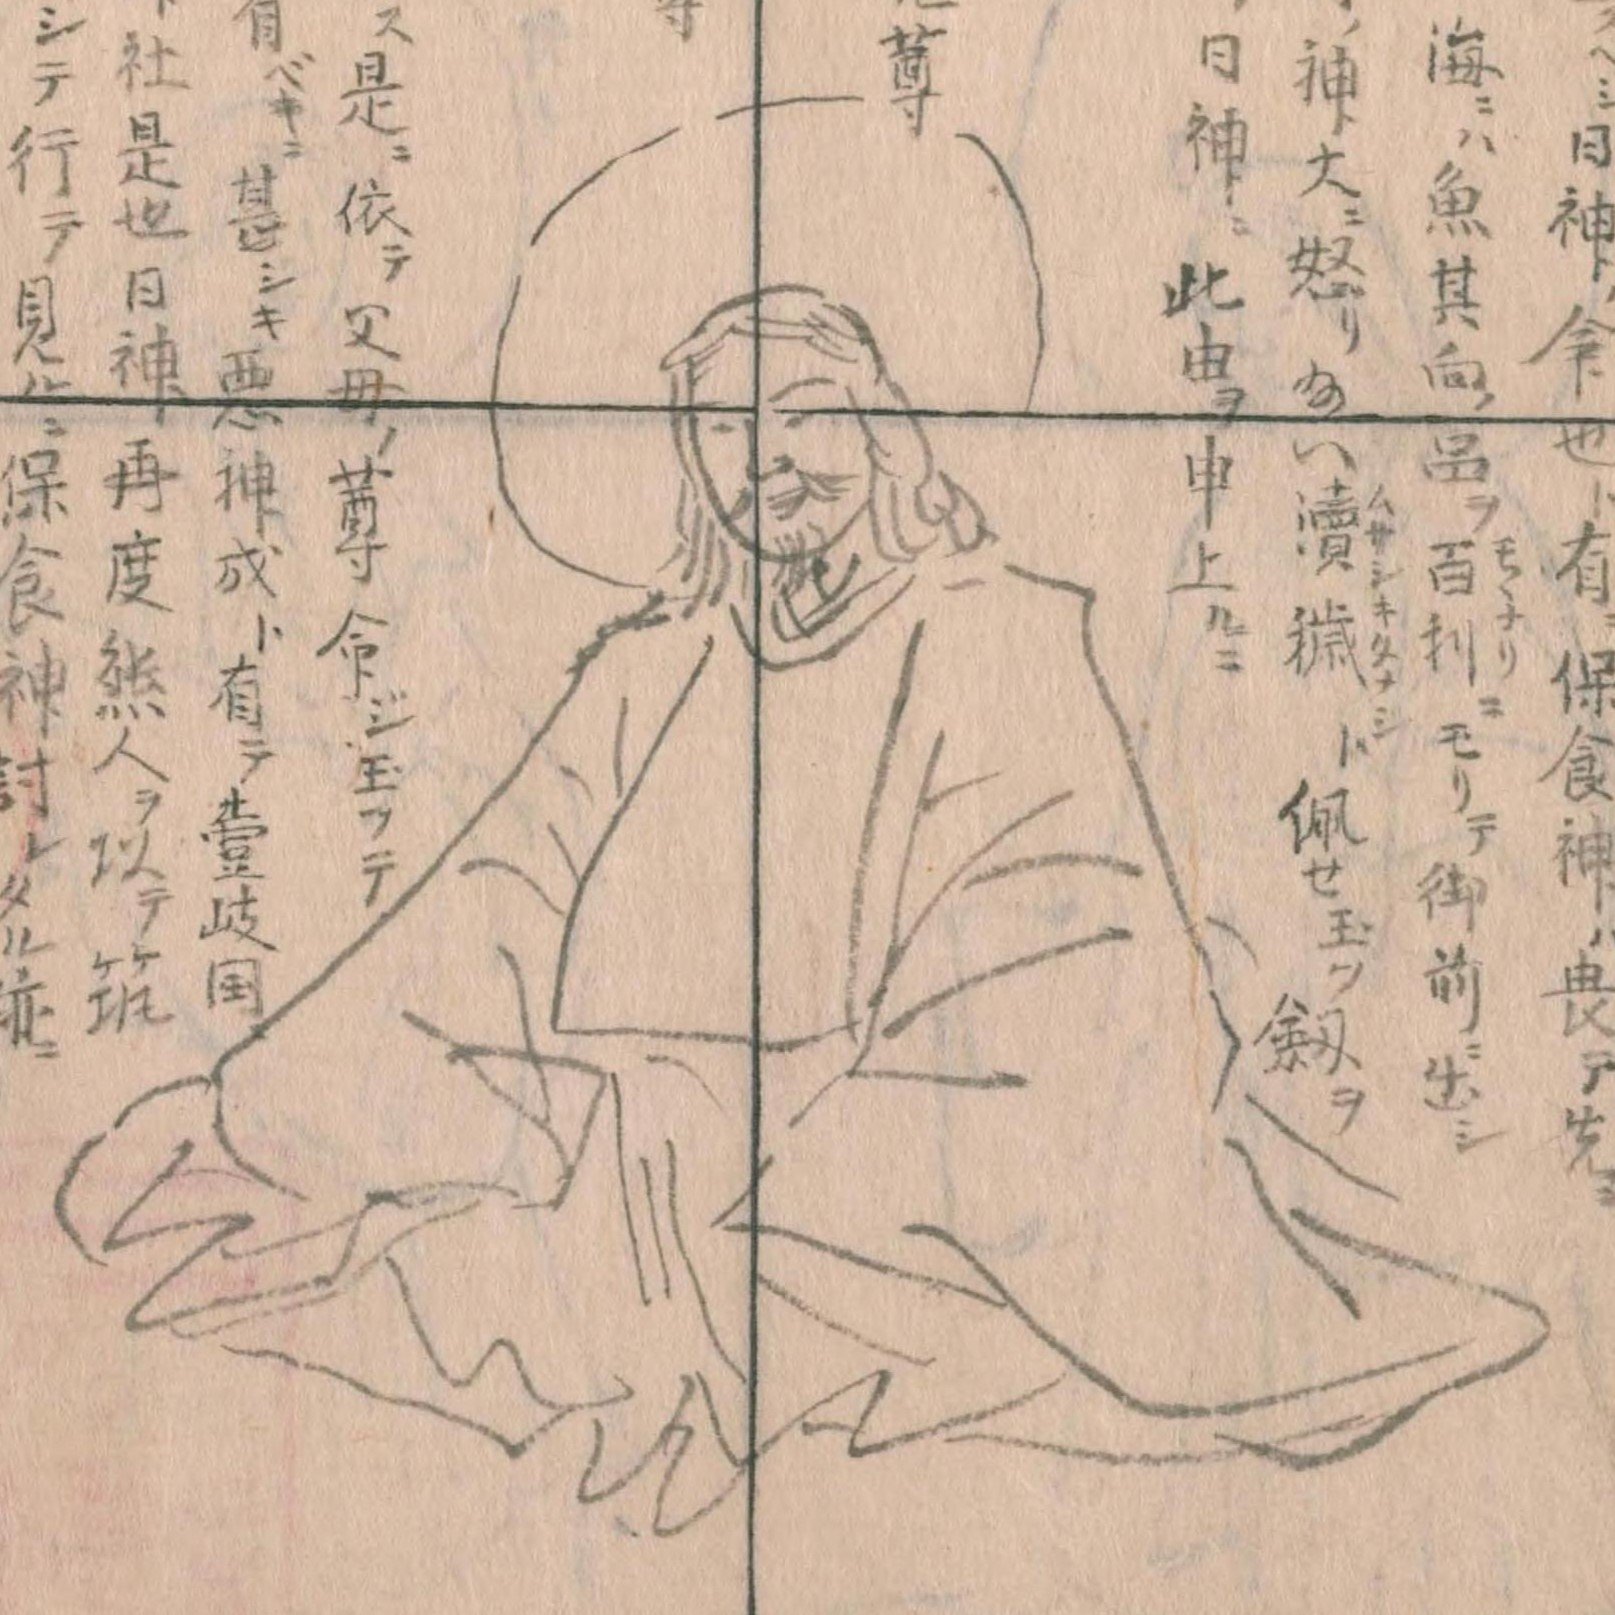 スベシ日神ノ命也ト有ニ保食神ハ畏テ先ニ
海ニハ魚其向ノ品ヲ百利ニモリテ御前ニ出シ
モヽナリ
神大ニ怒リ玉ハ瀆穢ト佩セ玉フ劔ヲ
ムサシキタナシ
日神ニ此由ヲ申上ルニ
尊
尊
ス是ニ依テ父母ノ尊命ジ玉フテ
有ベキニ甚シキ悪神成ト有テ壹岐国
社是也日神再度熊人ヲ以テ筑
シテ行テ見ルニ保食神討レタル跡ニ